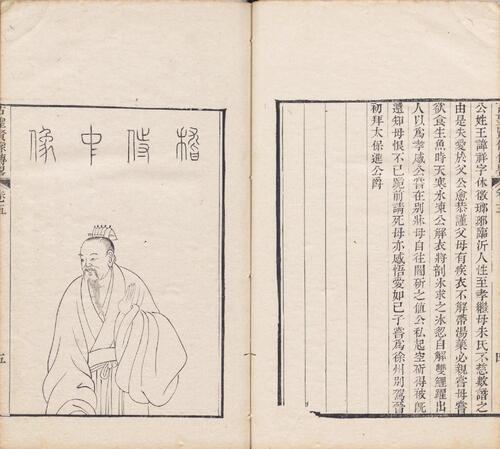 公姓王諱祥字休徵瑯琊臨沂人性至孝繼母朱氏不慈數譖之
由是失愛於父公愈恭謹父母有疾衣不解帶湯藥必親嘗母嘗
欲食生魚時天寒氷凍公解衣將剖氷求之氷忽自解雙鯉躍出
人以爲孝感公嘗在别牀母自往闇斫之值公私起空斫得被旣
還知母恨不已跪前請死母亦感悟愛如己子嘗爲徐州别駕晉
初拜太保進公爵
嵇侍中像